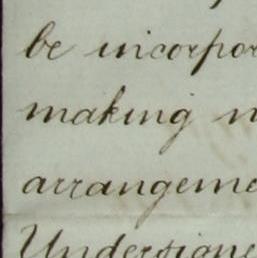 be incorpor
making
arrangeme
Undersigne